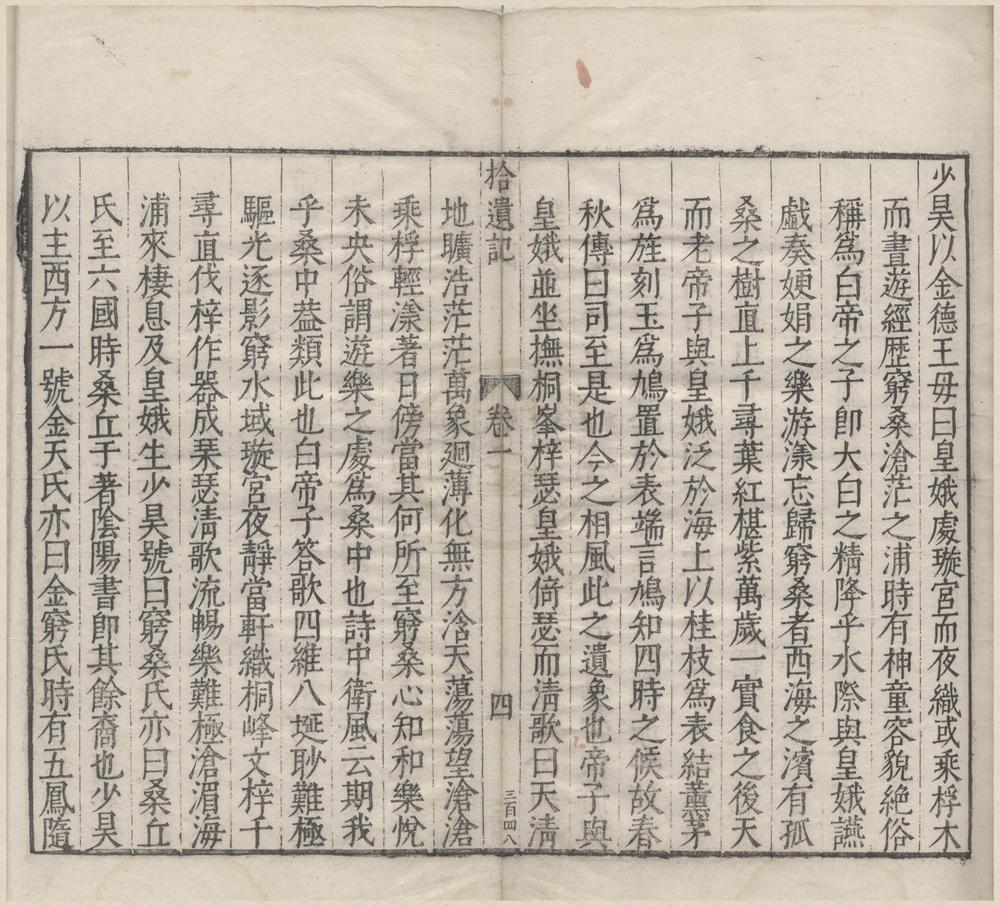 少昊以金德王母曰皇娥處璇宮而夜織或乘桴木
而晝遊經歴窮桑滄茫之浦時有神童容貌絶俗
稱爲白帝之子即大白之精降乎水際與皇娥讌
戯奏㛹娟之樂游漾忘歸窮桑者西海之濱有孤
桑之樹直上千尋葉紅椹紫萬歲一實食之後天
而老帝子與皇娥泛於海上以桂枝爲表結薰茅
爲旌刻玉爲鳩置於表端言鳩知四時之候故春
秋傳曰司至是也今之相風此之遺象也帝子與
皇娥並坐撫桐峯梓瑟皇娥倚瑟而淸歌曰天淸
拾遺記 卷一 四 三百四八
地曠浩茫茫萬象廻薄化無方浛天蕩蕩望滄滄
乘桴輕漾著日傍當其何所至窮桑心知和樂悅
未央俗謂遊樂之處爲桑中也詩中衛風云期我
乎桑中葢類此也白帝子答歌四維八埏眇難極
驅光逐影窮水域璇宮夜靜當軒織桐峰文梓千
尋直伐梓作器成琹瑟淸歌流暢樂難極滄湄海
浦來棲息及皇娥生少昊號曰窮桑氏亦曰桑丘
氏至六國時桑丘子著陰陽書即其餘裔也少昊
以主西方一號金天氏亦曰金窮氏時有五鳳隨